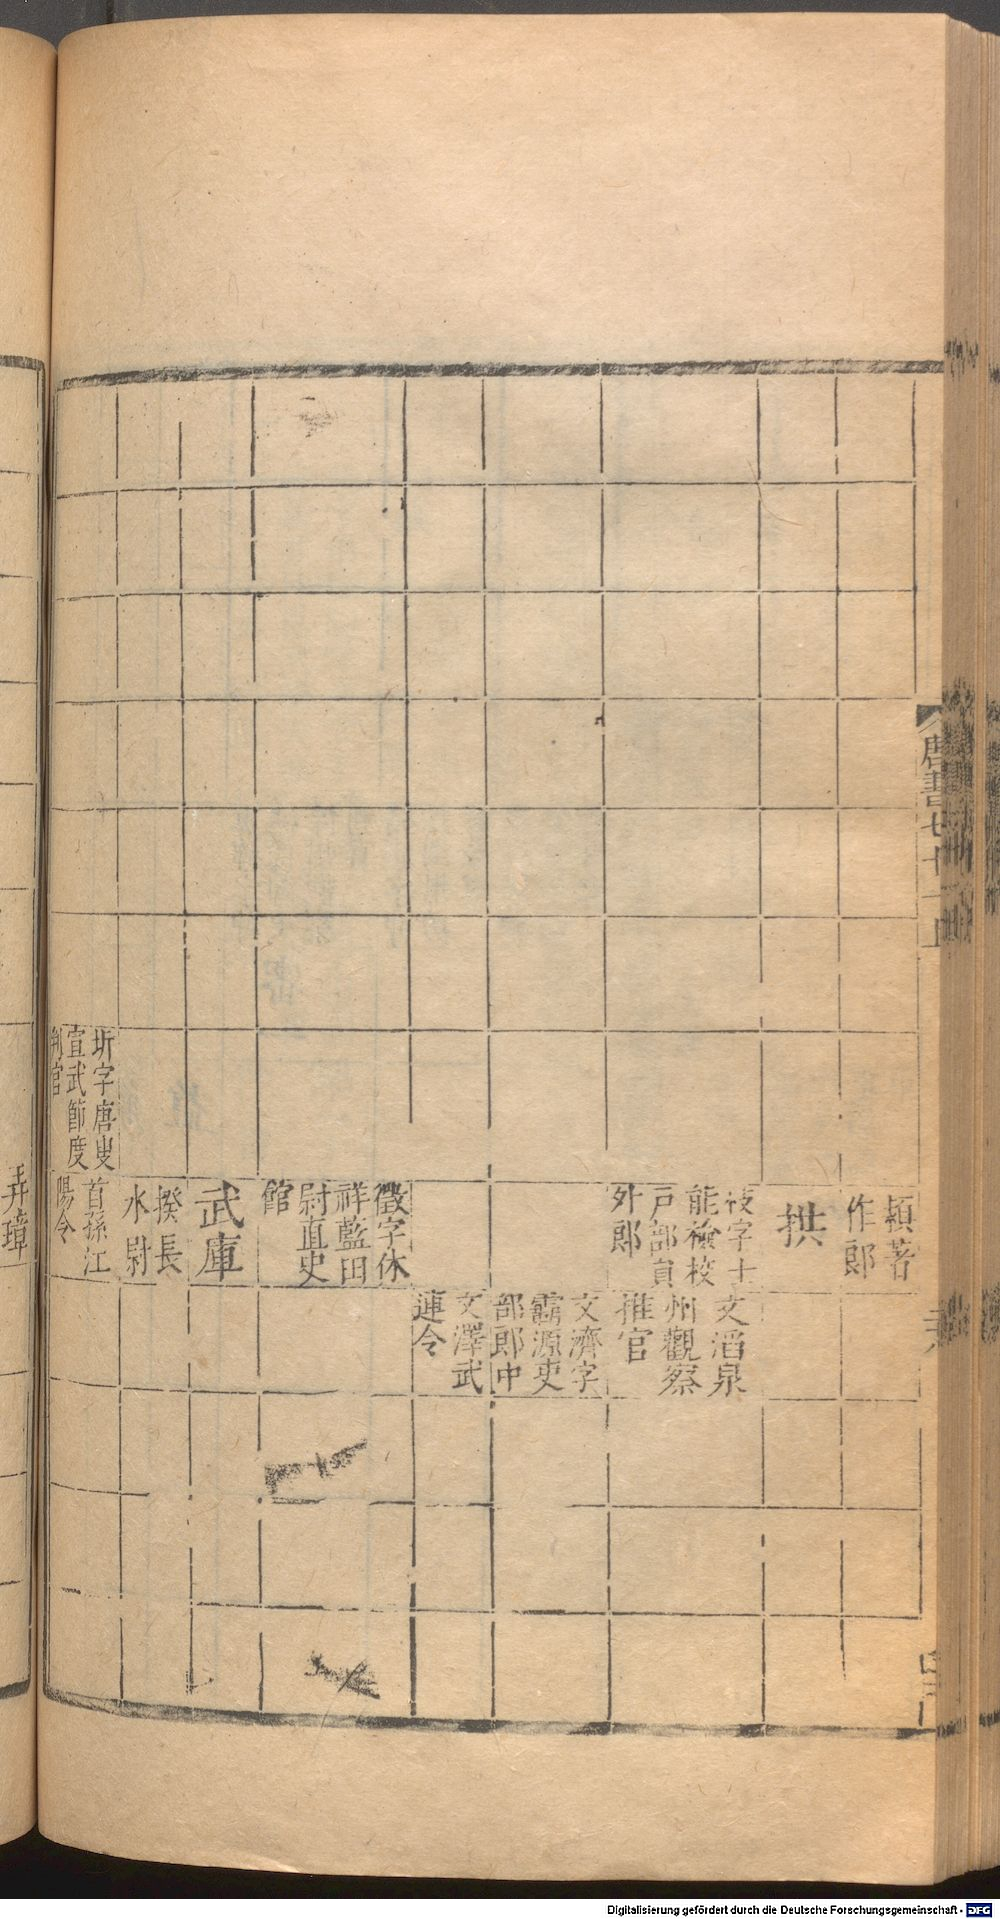 唐書七十一
穎著
作郎
拱
技字士
能檢校
戸部員
外郎
文滔泉
州觀察
推官
文濟字
霸源吏
部郎中
文澤武
連令
徵字休
祥藍田
尉直史
館
武庫
揆長
水尉
圻字唐叟
宣武節度
判官
首孫江
陽令
弄璋
Digitalisierung gefördert durch die Deutsche Forschungsgemeinschaft - DFG